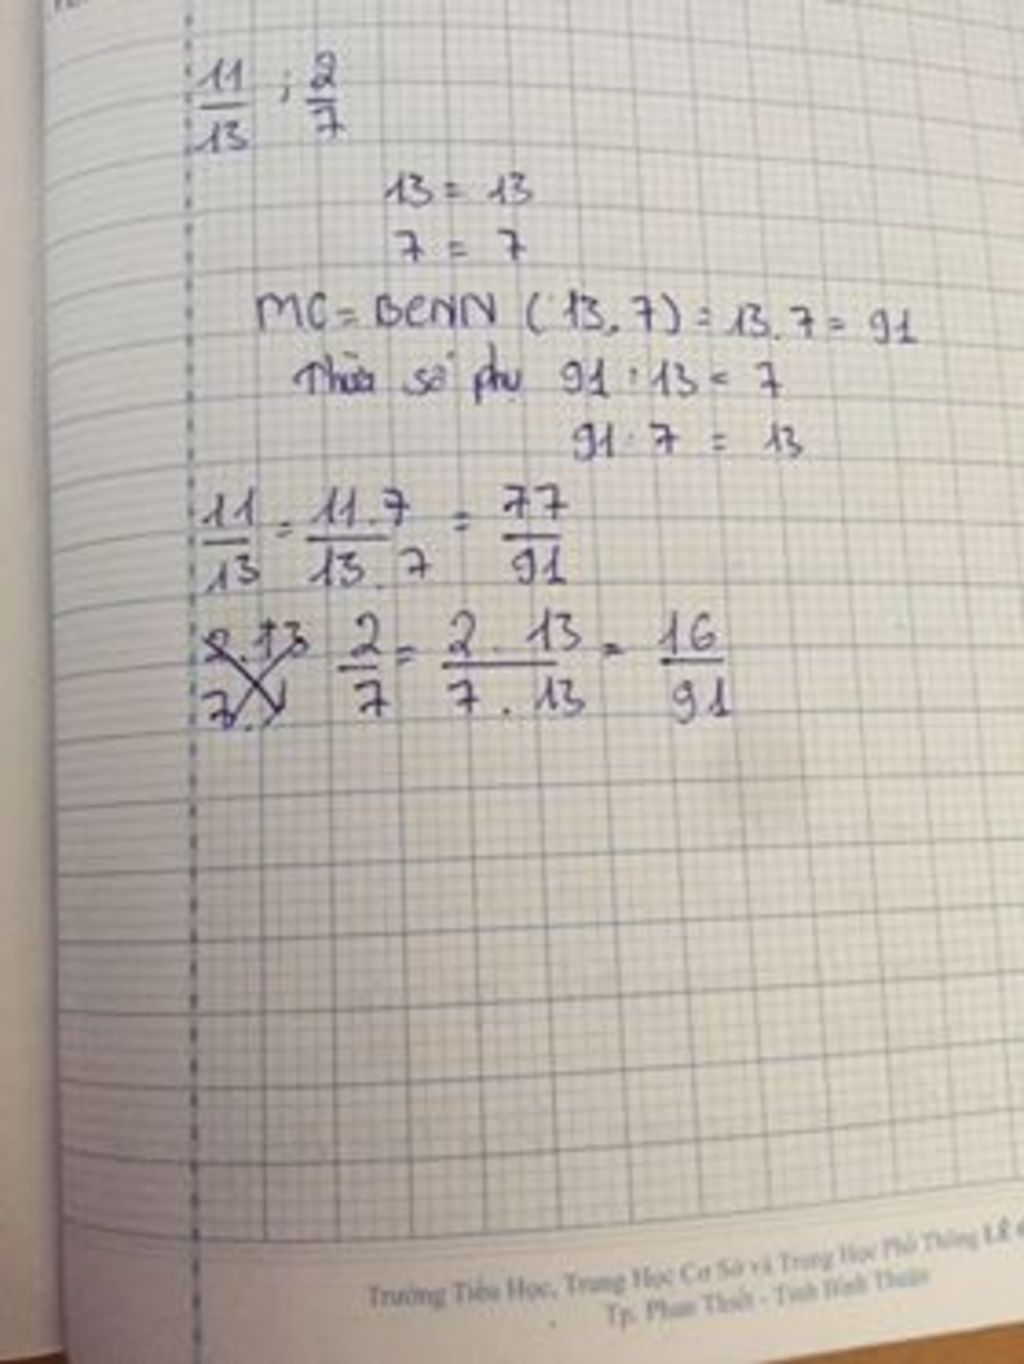 11/13 ; 2/7
13 = 13
7 = 7
MC = BCNN (13, 7) = 13.7 = 91
Thừa số phụ 91 : 13 = 7
91 : 7 = 13
11/13 = 11.7/13.7 = 77/91
2/7 = 2.13/7.13 = 16/91
Trường Tiểu Học, Trung Học Cơ Sở và Trung Học Phổ Thông LÊ
Tp. Phan Thiết - Tỉnh Bình Thuận